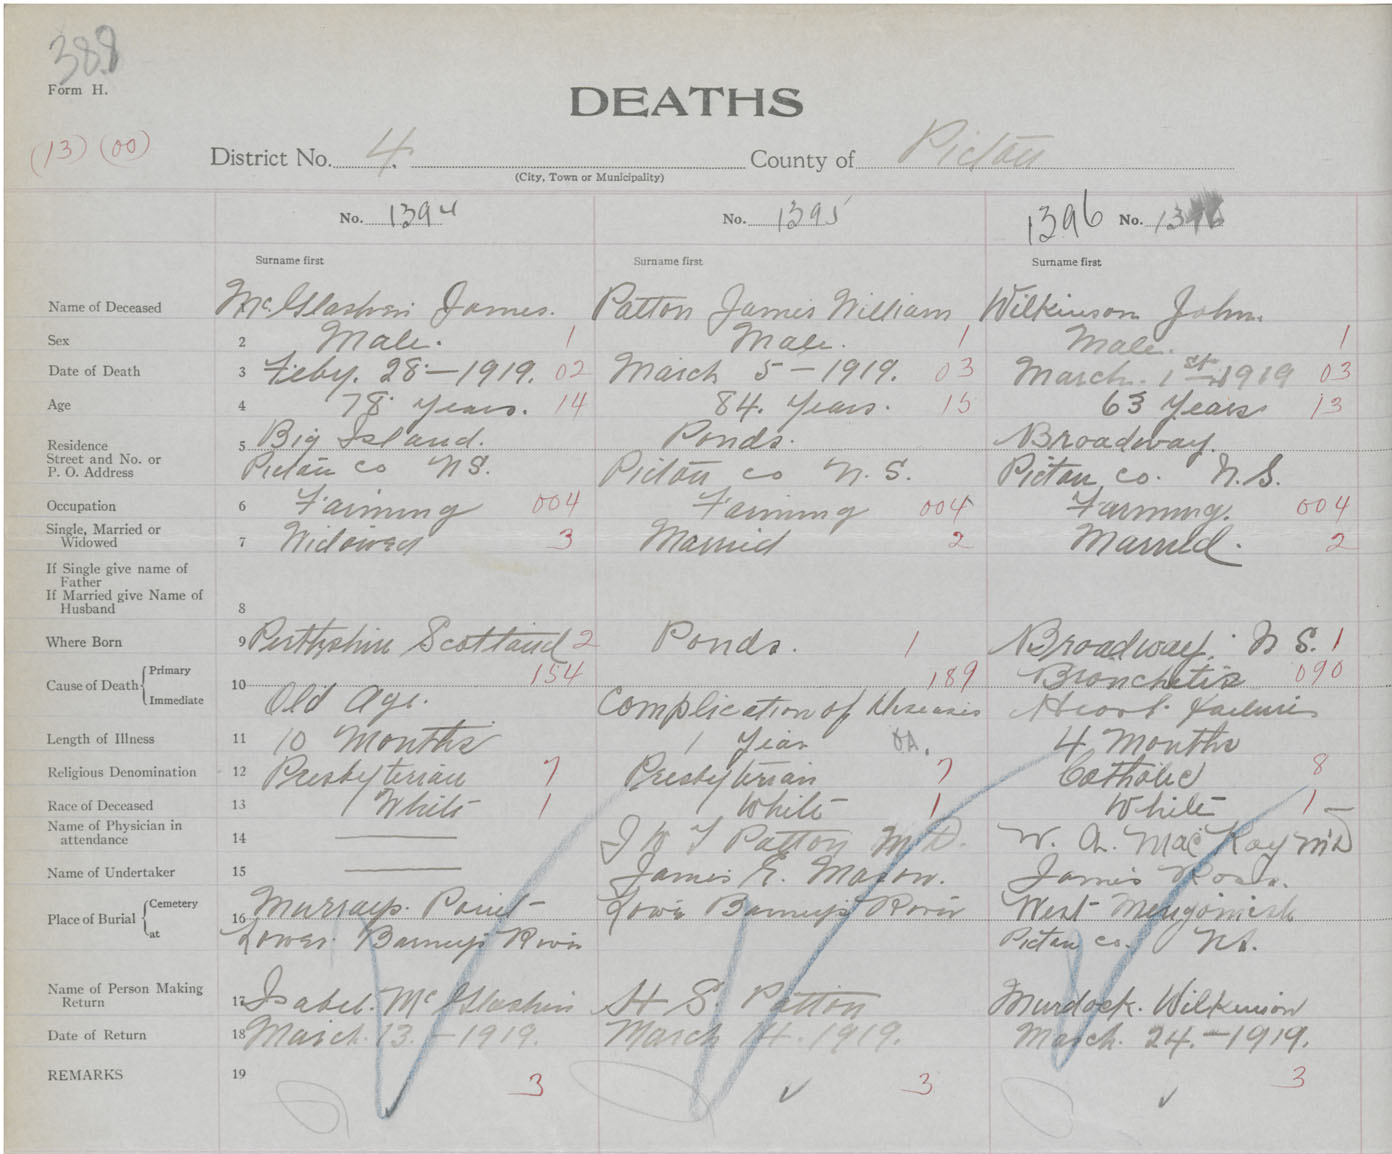 388
Form H.
DEATHS
(13) (00)
District No. 4. County of Pictou
(City, Town or Municipality)
No. 1394 No. 1395 1396 No. 1396
Surname first Surname first Surname first
Name of Deceased McGlashin James. Patton James William Wilkinson John.
Sex 2 Male. 1 Male. 1 Male. 1
Date of Death 3 Feby. 28 - 1919. 02 March 5 - 1919. 03 March. 1st 1919 03
Age 4 78 Years. 14 84. Years. 15 63 Years 13
Residence 5 Big Island. Ponds. Broadway.
Street and No. or
P. O. Address Pictou co N S. Pictou co N. S. Pictou co. N. S.
Occupation 6 Farming 004 Farming 004 Farming. 004
Single, Married or
Widowed 7 Widowed 3 Married 2 Married. 2
If Single give name of
Father
If Married give Name of
Husband 8
Where Born 9 Perthshire Scotland 2 Ponds. 1 Broadway. N S. 1
Primary 154 189 Bronchetis 090
Cause of Death 10
Immediate Old Age. Complication of Diseases Heart. failure
Length of Illness 11 10 Months 1 Year OA. 4 Months
Religious Denomination 12 Presbyterian 7 Presbyterian 7 Catholic 8
Race of Deceased 13 White 1 White 1 White 1
Name of Physician in
attendance 14 J W T Patton M.D. W. A. MacKay M.D
Name of Undertaker 15 James E. Mason. James Ross.
Place of Burial Cemetery 16 Murrays. Point Lower Barneys River West Merigomish
at Lower Barneys River Pictou co. N.S.
Name of Person Making
Return 17 Isabel. McGlashin H S. Patton Murdock. Wilkinson
Date of Return 18 March. 13. - 1919. March 14. 1919. March. 24. - 1919.
REMARKS 19 3 3 3